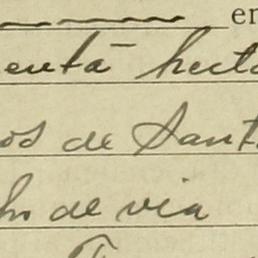 en
entā hect
os de Sant
de via